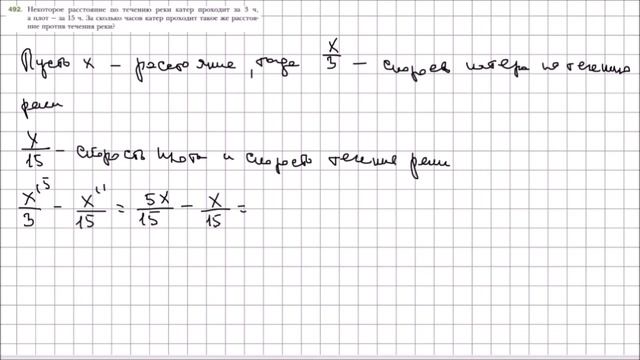 492. Некоторое расстояние по течению реки катер проходит за 3 ч,
а плот – за 15 ч. За сколько часов катер проходит такое же расстоя-
ние против течения реки?
Пусть х – расстояние, тогда x/3 – скорость катера по течению
реки
x/15 – скорость плота и скорость течения реки
x/3 ⁽⁵ – x/15 ⁽¹ = 5x/15 – x/15 =